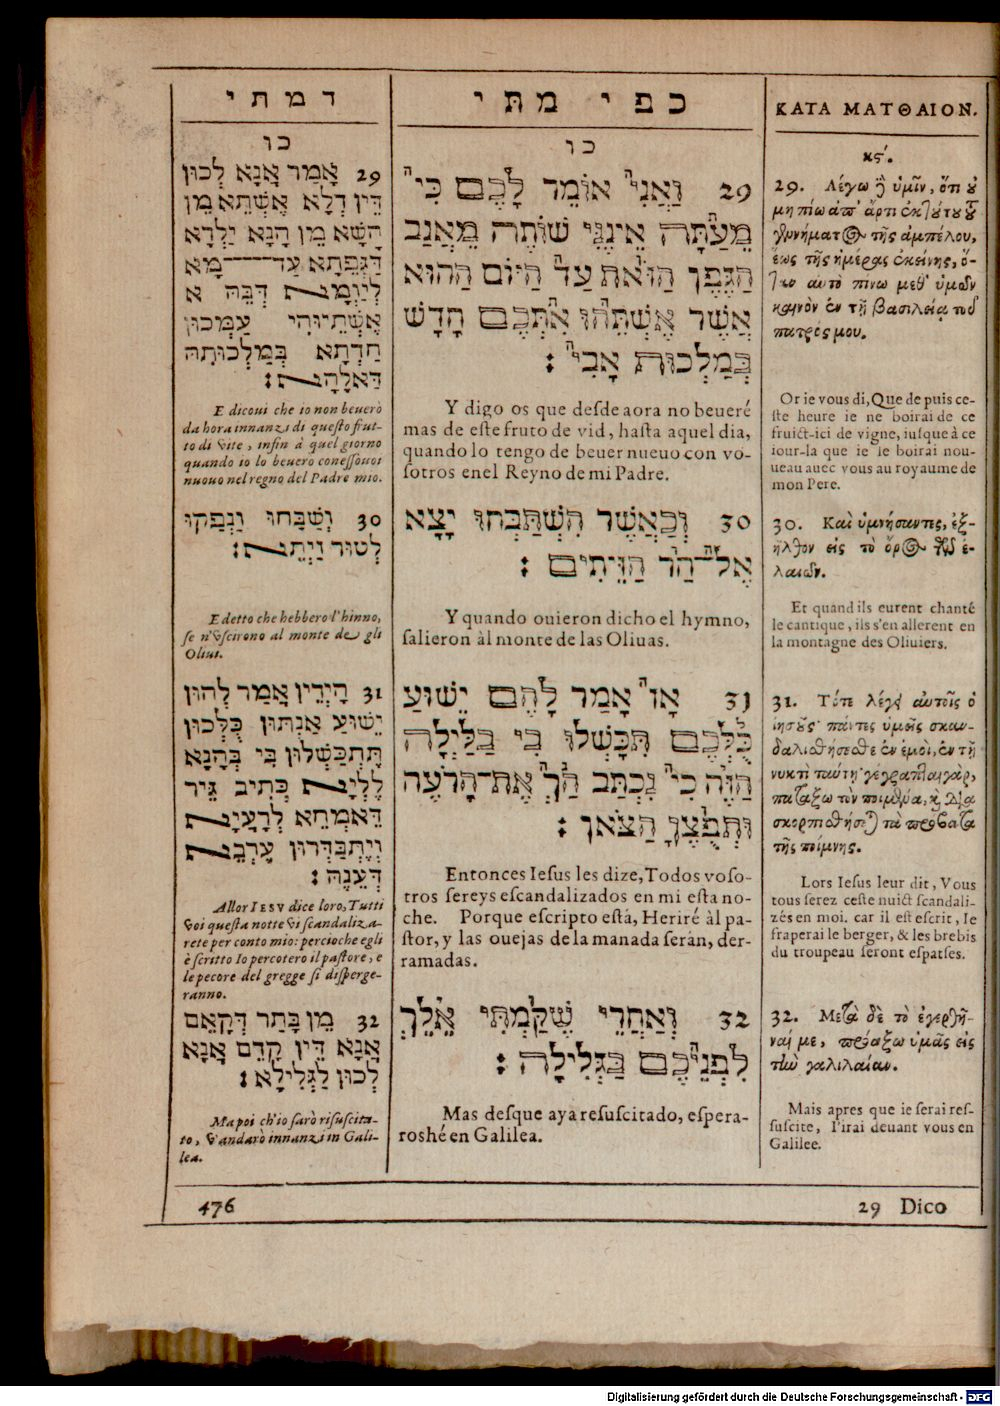 דמתי
כו
29 אָמַר אֲנָא לְכוּן
דֵּין דְּלָא אֶשְׁתֵּא מֵן
הָשָׁא מֵן הָנָא יַלְדָא
דַּגְּפֵתָּא עד־־־־־מָא
לְיַוְמָא דְּבֵהּ א
אֶשְׁתֵּיוּהִי עַמְּכוּן
חַדְתָא בְּמַלְכּוּתֵהּ
דַּאלָהָא :
E dicoui che io non beuerò
da hora innanzi di questo frut-
to di vite, infin à quel giorno
quando io lo beuero con essouoi
nuouo nel regno del Padre mio.
30 וְשַׁבָּחוּ וַנְפַקוּ
לְטוּר זַיְתֵא :
E detto che hebbero l'hinno,
se n'vscirono al monte de gli
Oliui.
31 הָיְדֵין אֲמַר לְהוּן
יֵשׁוּעַ אַנְתּוּן כֻּלְּכוּן
תִּתְכַּשְׁלוּן בִּי בְּהָנָא
לֶלְיָא כְּתִיב גֵּיר
דֵּאמְחֵא לְרָעְיָא
וְיֶתְבַּדְּרוּן עֶרְבֵא
דְּעָנֶהּ :
Allor IESV dice loro, Tutti
voi questa notte vi scandaliza-
rete per conto mio: percioche egli
è scritto Io percotero il pastore, e
le pecore del gregge si disperge-
ranno.
32 מֵן בָּתַר דְּקָאֵם
אֲנָא דֵּין קָדֵם אֲנָא
לְכוּן לַגְלִילָא :
Ma poi ch'io sarò risuscita-
to, v'andarò innanzi in Gali-
lea.
כפי מתי
כו
29 וַאֲנִי אוֹמֵד לָכֶם כִּי
מֵעַתָּה אֵינֶנִּי שׁוֹתֶה מֵאֲנַב
הַגֶּפֶן הַזֹּאת עַד הַיּוֹם הַהוּא
אֲשֶׁר אֶשְׁתֵּהוּ אִתְּכֶם חָדָשׁ
בְּמַלְכוּת אָבִי :
Y digo os que desde aora no beueré
mas de este fruto de vid, hasta aquel dia,
quando lo tengo de beuer nueuo con vo-
sotros enel Reyno de mi Padre.
30 וְכַאֲשֶׁר הִשְׁתַּבְּחוּ יָצָא
אֶל־הַר הַזֵּיתִים :
Y quando ouieron dicho el hymno,
salieron àl monte de las Oliuas.
31 אָז אָמַר לָהֶם יֵשׁוּעַ
כֻּלְּכֶם תִּכָּשְׁלוּ בִי בַלַּיְלָה
הַזֶּה כִּי נִכְתַּב הַךְ אֶת־הָרֹעֶה
וּתְפֻצֶּןָ הַצֹּאן :
Entonces Iesus les dize, Todos voso-
tros sereys escandalizados en mi esta no-
che. Porque escripto está, Heriré àl pa-
stor, y las ouejas de la manada seràn, der-
ramadas.
32 וְאַחֲרֵי שֶׁקַּמְתִּי אֵלֵךְ
לִפְנֵיכֶם בַּגְּלִילָה :
Mas desque aya resuscitado, espera-
roshé en Galilea.
ΚΑΤΑ ΜΑΤΘΑΙΟΝ.
κϛʹ.
29. Λέγω δὲ ὑμῖν, ὅτι οὐ
μὴ πίω ἀπ' ἄρτι ἐκ τούτου τοῦ
γεννήματος τῆς ἀμπέλου,
ἕως τῆς ἡμέρας ἐκείνης, ὅ-
ταν αὐτὸ πίνω μεθ' ὑμῶν
καινὸν ἐν τῇ βασιλείᾳ τοῦ
πατρός μου.
Or ie vous di, Que de puis ce-
ste heure ie ne boirai de ce
fruict-ici de vigne, iusque à ce
iour-la que ie le boirai nou-
ueau auec vous au royaume de
mon Pere.
30. Καὶ ὑμνήσαντες, ἐξ-
ῆλθον εἰς τὸ ὄρος τῶν ἐ-
λαιῶν.
Et quand ils eurent chanté
le cantique, ils s'en allerent en
la montagne des Oliuiers.
31. Τότε λέγει αὐτοῖς ὁ
ἰησοῦς· πάντες ὑμεῖς σκαν-
δαλισθήσεσθε ἐν ἐμοὶ, ἐν τῇ
νυκτὶ ταύτῃ· γέγραπται γὰρ,
πατάξω τὸν ποιμένα, καὶ δια
σκορπισθήσεται τὰ πρόβατα
τῆς ποίμνης.
Lors Iesus leur dit, Vous
tous serez ceste nuict scandali-
zés en moi. car il est escrit, Ie
fraperai le berger, & les brebis
du troupeau seront esparses.
32. Μετὰ δὲ τὸ ἐγερθῆ-
ναί με, προάξω ὑμᾶς εἰς
τὴν γαλιλαίαν.
Mais apres que ie serai res-
suscite, I'irai deuant vous en
Galilee.
476
29 Dico
Digitalisierung gefördert durch die Deutsche Forschungsgemeinschaft - DFG